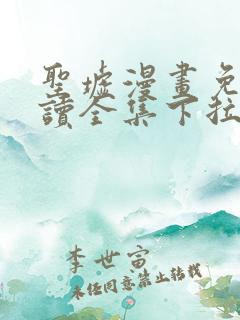 聖墟漫畫免
讀全集下拉
李世寅
未经同意禁止转载